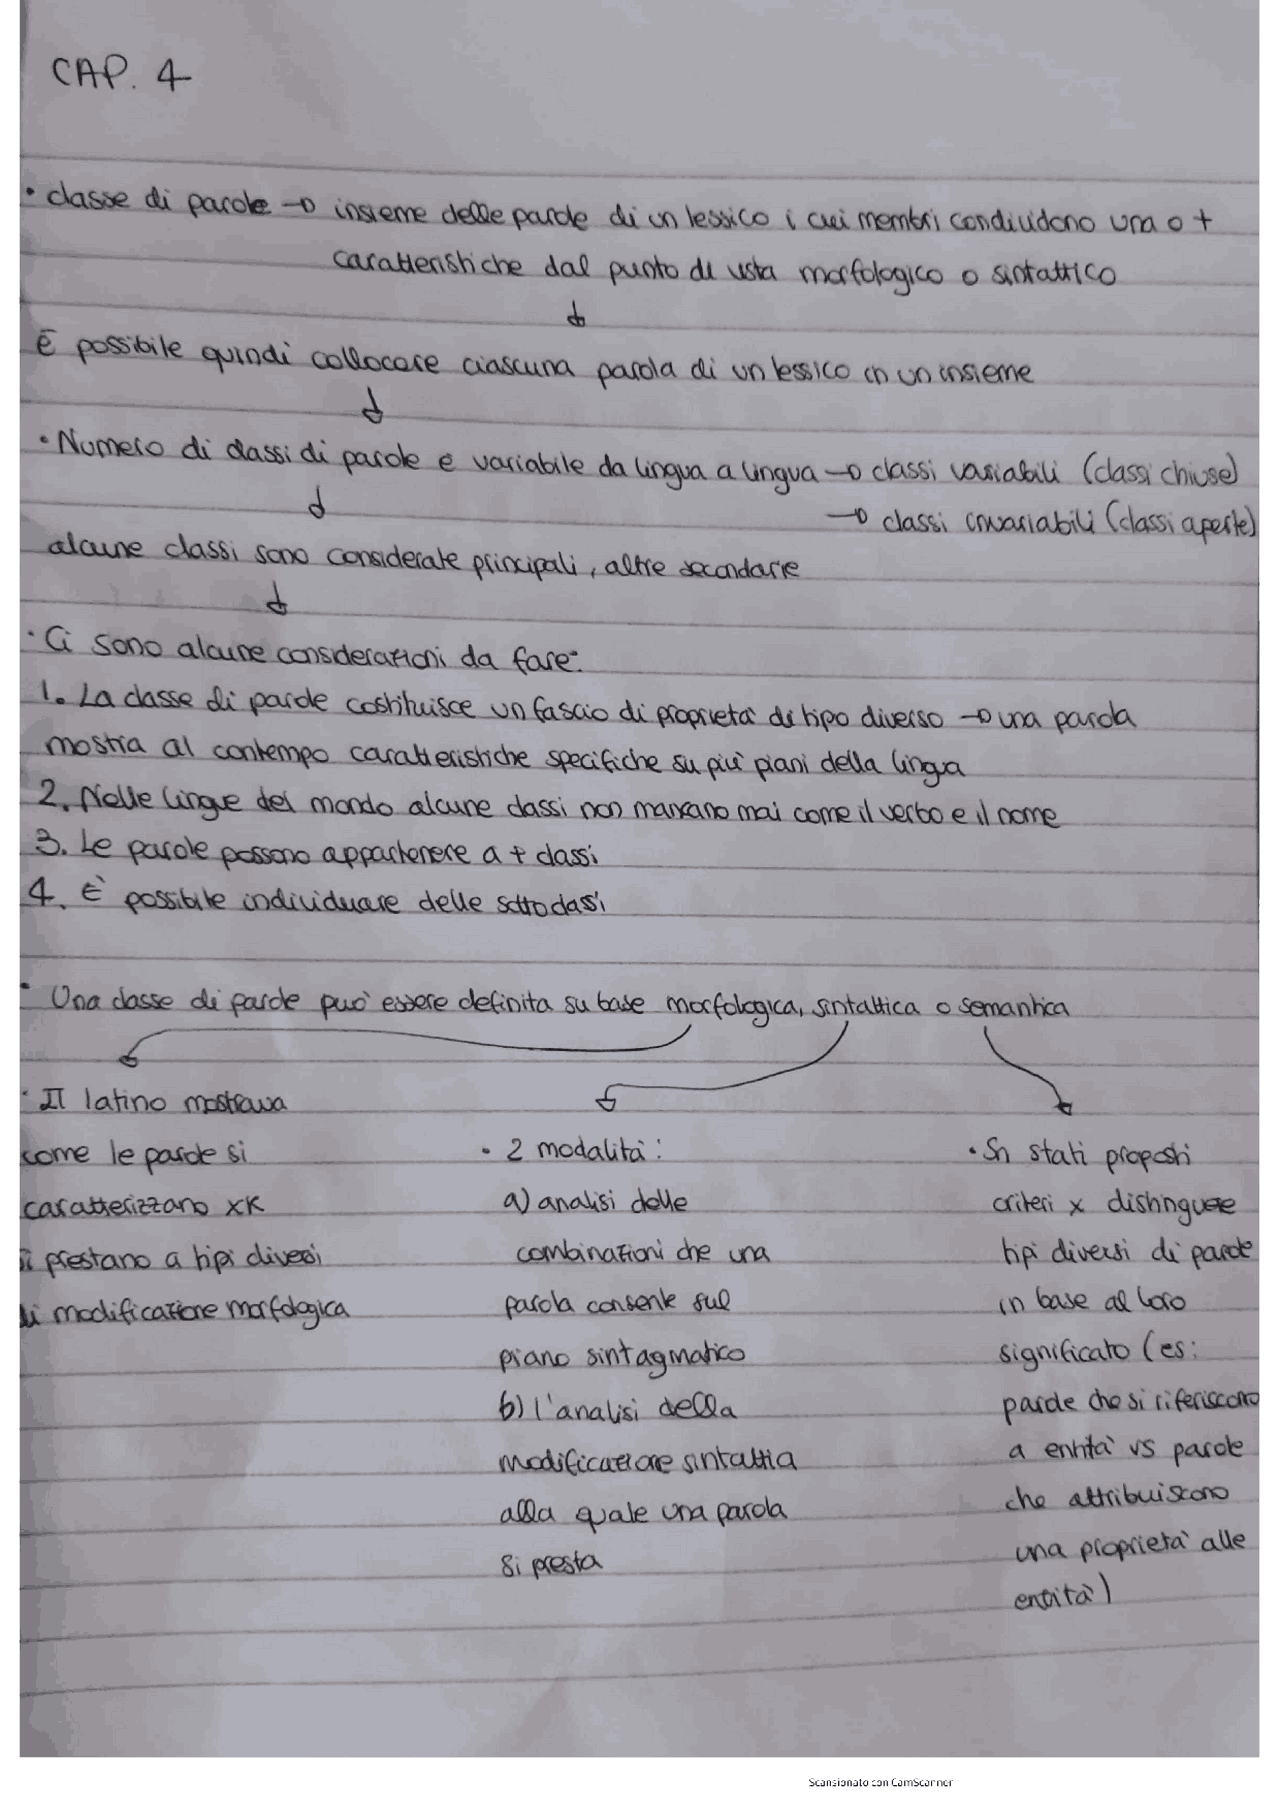 CAP. 4
• classe di parole → insieme delle parole di un lessico i cui membri condividono una o +
caratteristiche dal punto di vista morfologico o sintattico
↓
È possibile quindi collocare ciascuna parola di un lessico in un insieme
↓
• Numero di classi di parole è variabile da lingua a lingua → classi variabili (classi chiuse)
→ classi invariabili (classi aperte)
↓
alcune classi sono considerate principali, altre secondarie
↓
• Ci sono alcune considerazioni da fare:
1. La classe di parole costituisce un fascio di proprietà di tipo diverso → una parola
mostra al contempo caratteristiche specifiche su più piani della lingua
2. Nelle lingue del mondo alcune classi non mancano mai come il verbo e il nome
3. Le parole possono appartenere a + classi
4. È possibile individuare delle sottoclassi
• Una classe di parole può essere definita su base morfologica, sintattica o semantica
• Il latino mostrava
come le parole si
caratterizzano xK
si prestano a tipi diversi
di modificazione morfologica
• 2 modalità:
a) analisi delle
combinazioni che una
parola consente sul
piano sintagmatico
b) l'analisi della
modificazione sintattia
alla quale una parola
si presta
• Sn stati proposti
criteri x distinguere
tipi diversi di parole
in base al loro
significato (es:
parole che si riferiscono
a entità vs parole
che attribuiscono
una proprietà alle
entità)
Scansionato con CamScanner